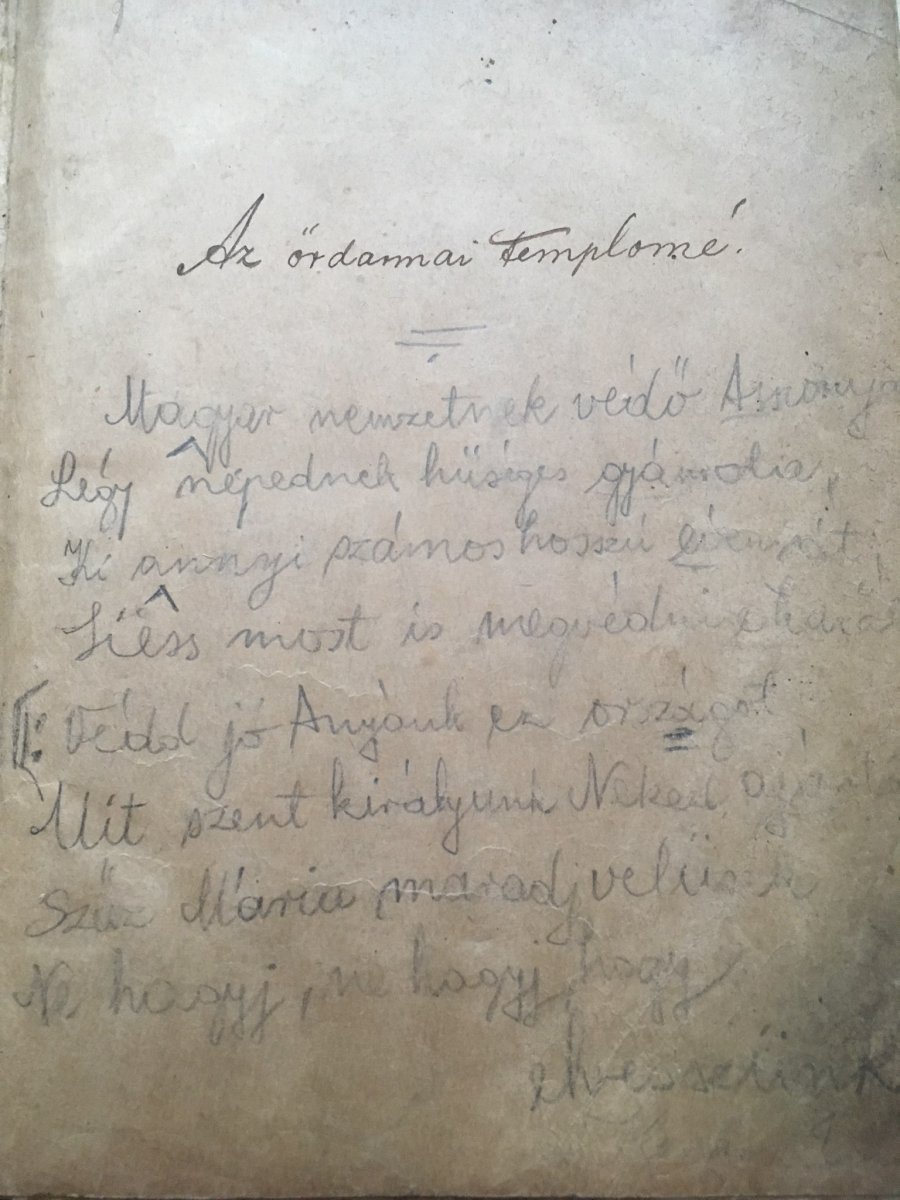 Az őrdannai templomé.
Magyar nemzetnek védő Asszonya
Légy népednek hűséges gyámola,
Ki annyi számos hosszú
Siess most is megvédni
Védd jó Anyánk ez országot
Mit szent királyunk Neked
Szűz Mária maradj velünk
Ne hagyj, ne hagyj, hogy
elvesszünk